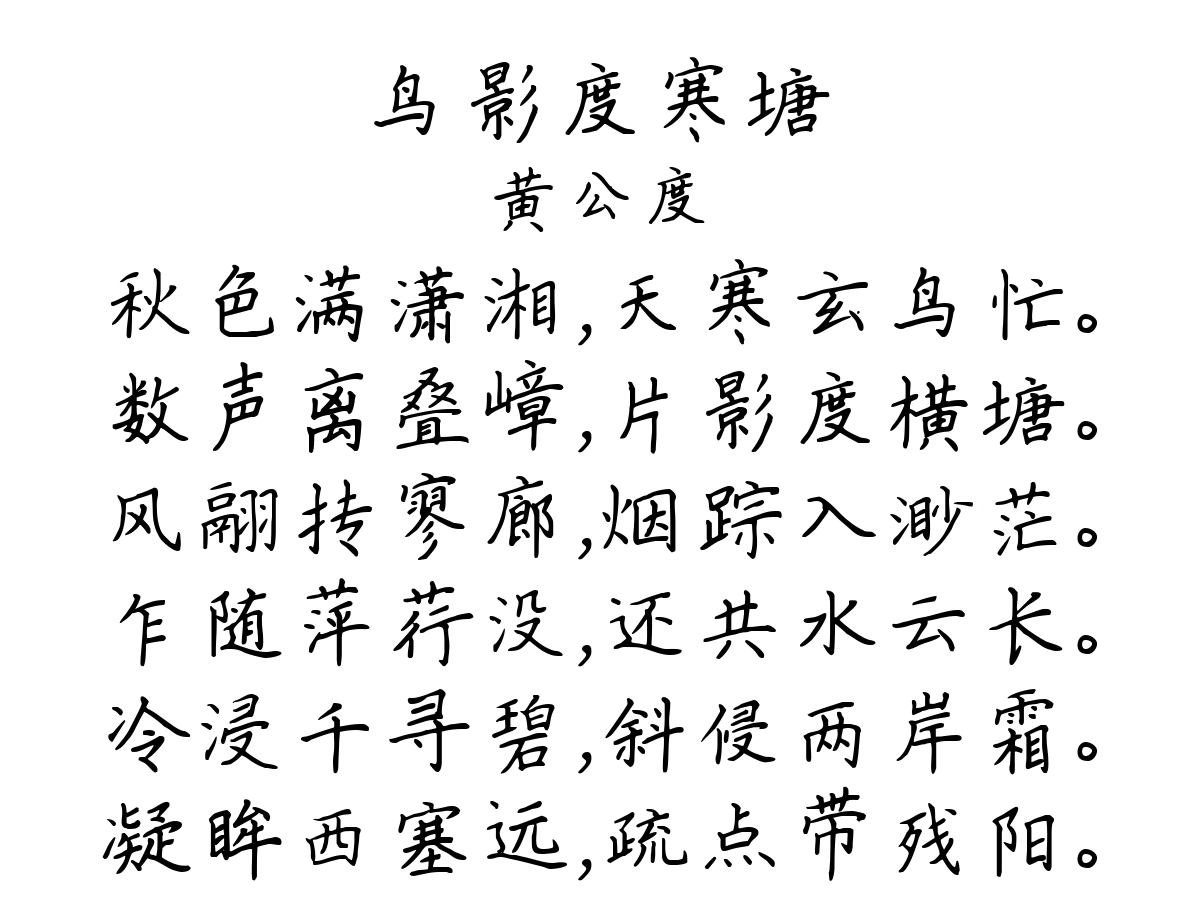 鸟影度寒塘
黄公度
秋色满潇湘,天寒玄鸟忙。
数声离叠嶂,片影度横塘。
风翮抟寥廊,烟踪入渺茫。
乍随萍荇没,还共水云长。
冷浸千寻碧,斜侵两岸霜。
凝眸西塞远,疏点带残阳。